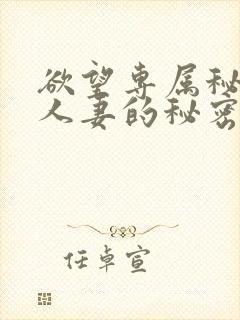 欲望专属秘
人妻的秘密
任卓宣